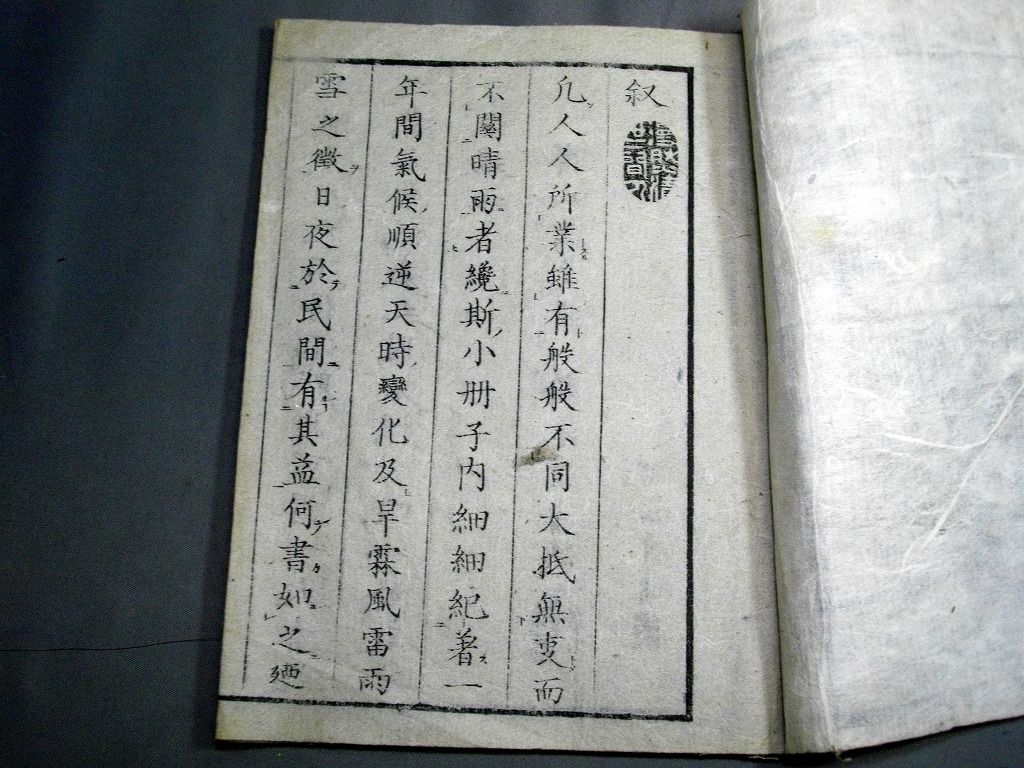 叙
凢人人所業雖有般般不同大抵無叓而
不關晴雨者纔斯小册子内細細紀著一
年間氣候順逆天時變化及旱霖風雷雨
雪之徵日夜於民間有其益何書如之廼